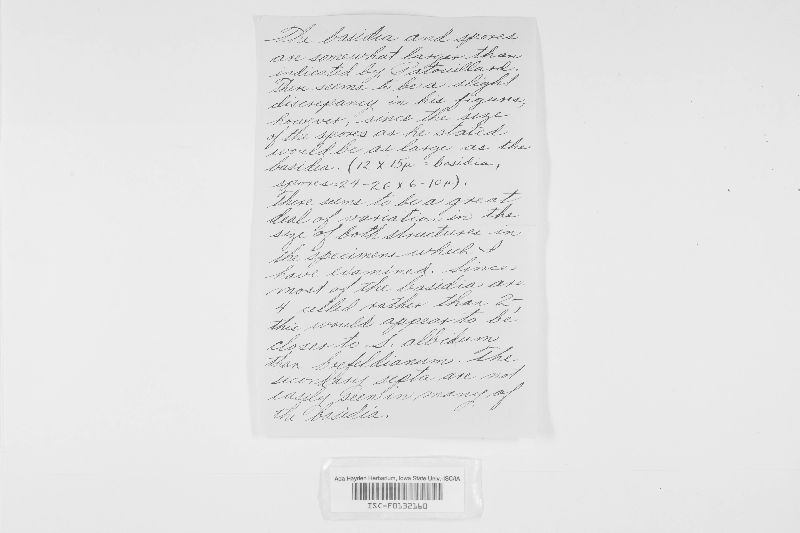 The basidia and spores
are somewhat larger than
indicated by Patouillard.
There seems to be a slight
discrepancy in his figures,
however, since the size
of the spores as he stated
would be as large as the
basidia. (12 x 15µ = basidia,
spores = 24-26 x 6-10µ).
There seems to be a great
deal of variation in the
size of both structures in
the specimens which I
have examined. Since
most of the basidia are
4 celled rather than 2-
this would appear to be
closer to S. albidum
than brefeldianum. The
secondary septa are not
easily seen in many of
the basidia.
Ada Hayden Herbarium, Iowa State Univ. ISC/IA
ISC-F0132160